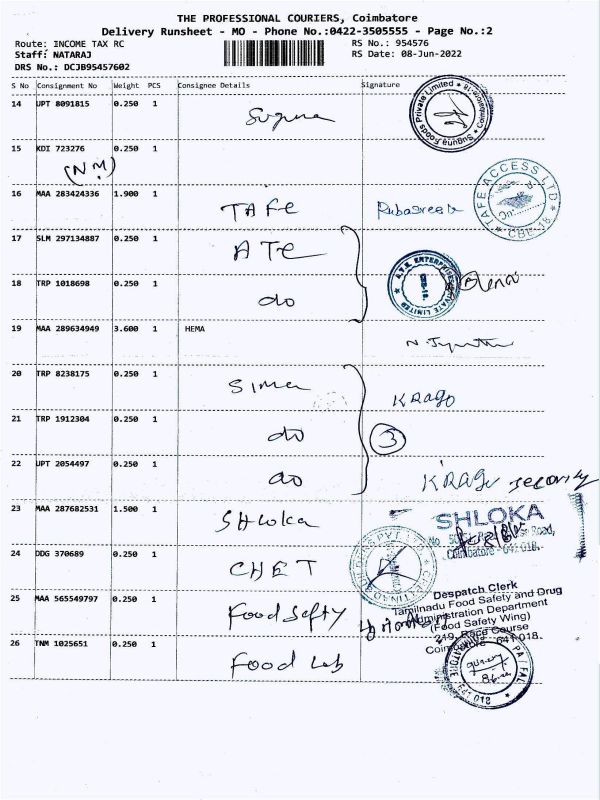 THE PROFESSIONAL COURIERS, Coimbatore
Delivery Runsheet - MO - Phone No.:0422-3505555 - Page No.:2
Route: INCOME TAX RC RS No.: 954576
Staff: NATARAJ RS Date: 08-Jun-2022
DRS No.: DCJB95457602
S No Consignment No Weight PCS Consignee Details Signature
14 UPT 8091815 0.250 1 Suguna
Suguna Foods Private Limited * Coimbatore-18 *
15 KDI 723276 0.250 1
(N M)
16 MAA 283424336 1.900 1 TAFE
TAFE ACCESS LTD * CBE-18 *
17 SLM 297134887 0.250 1 ATE
A.T.E. ENTERPRISES PRIVATE LIMITED CBE-18.
18 TRP 1018698 0.250 1 do
19 MAA 289634949 3.600 1 HEMA
20 TRP 8238175 0.250 1 Sima KRago
21 TRP 1912304 0.250 1 do
3
22 UPT 2054497 0.250 1 do KRago security
23 MAA 287682531 1.500 1 SHLoKa
SHLOKA
Race Road,
Coimbatore - 641 018.
24 DDG 370689 0.250 1 CHET
25 MAA 565549797 0.250 1 Food Safty
Despatch Clerk
Tamilnadu Food Safety and Drug
Administration Department
(Food Safety Wing)
219, Race Course
Coimbatore - 641 018.
26 TNM 1025651 0.250 1 Food Lab